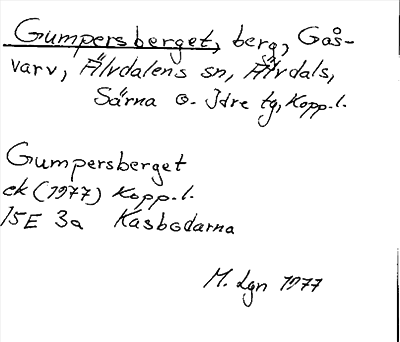 Gumpersberget, berg, Gås-
varv, Älvdalens sn, Älvdals,
Särna o. Idre tg, Kopp.l.
Gumpersberget
ek (1977) Kopp.l.
15E 3a Kåsbodarna
M. Lgn 1977